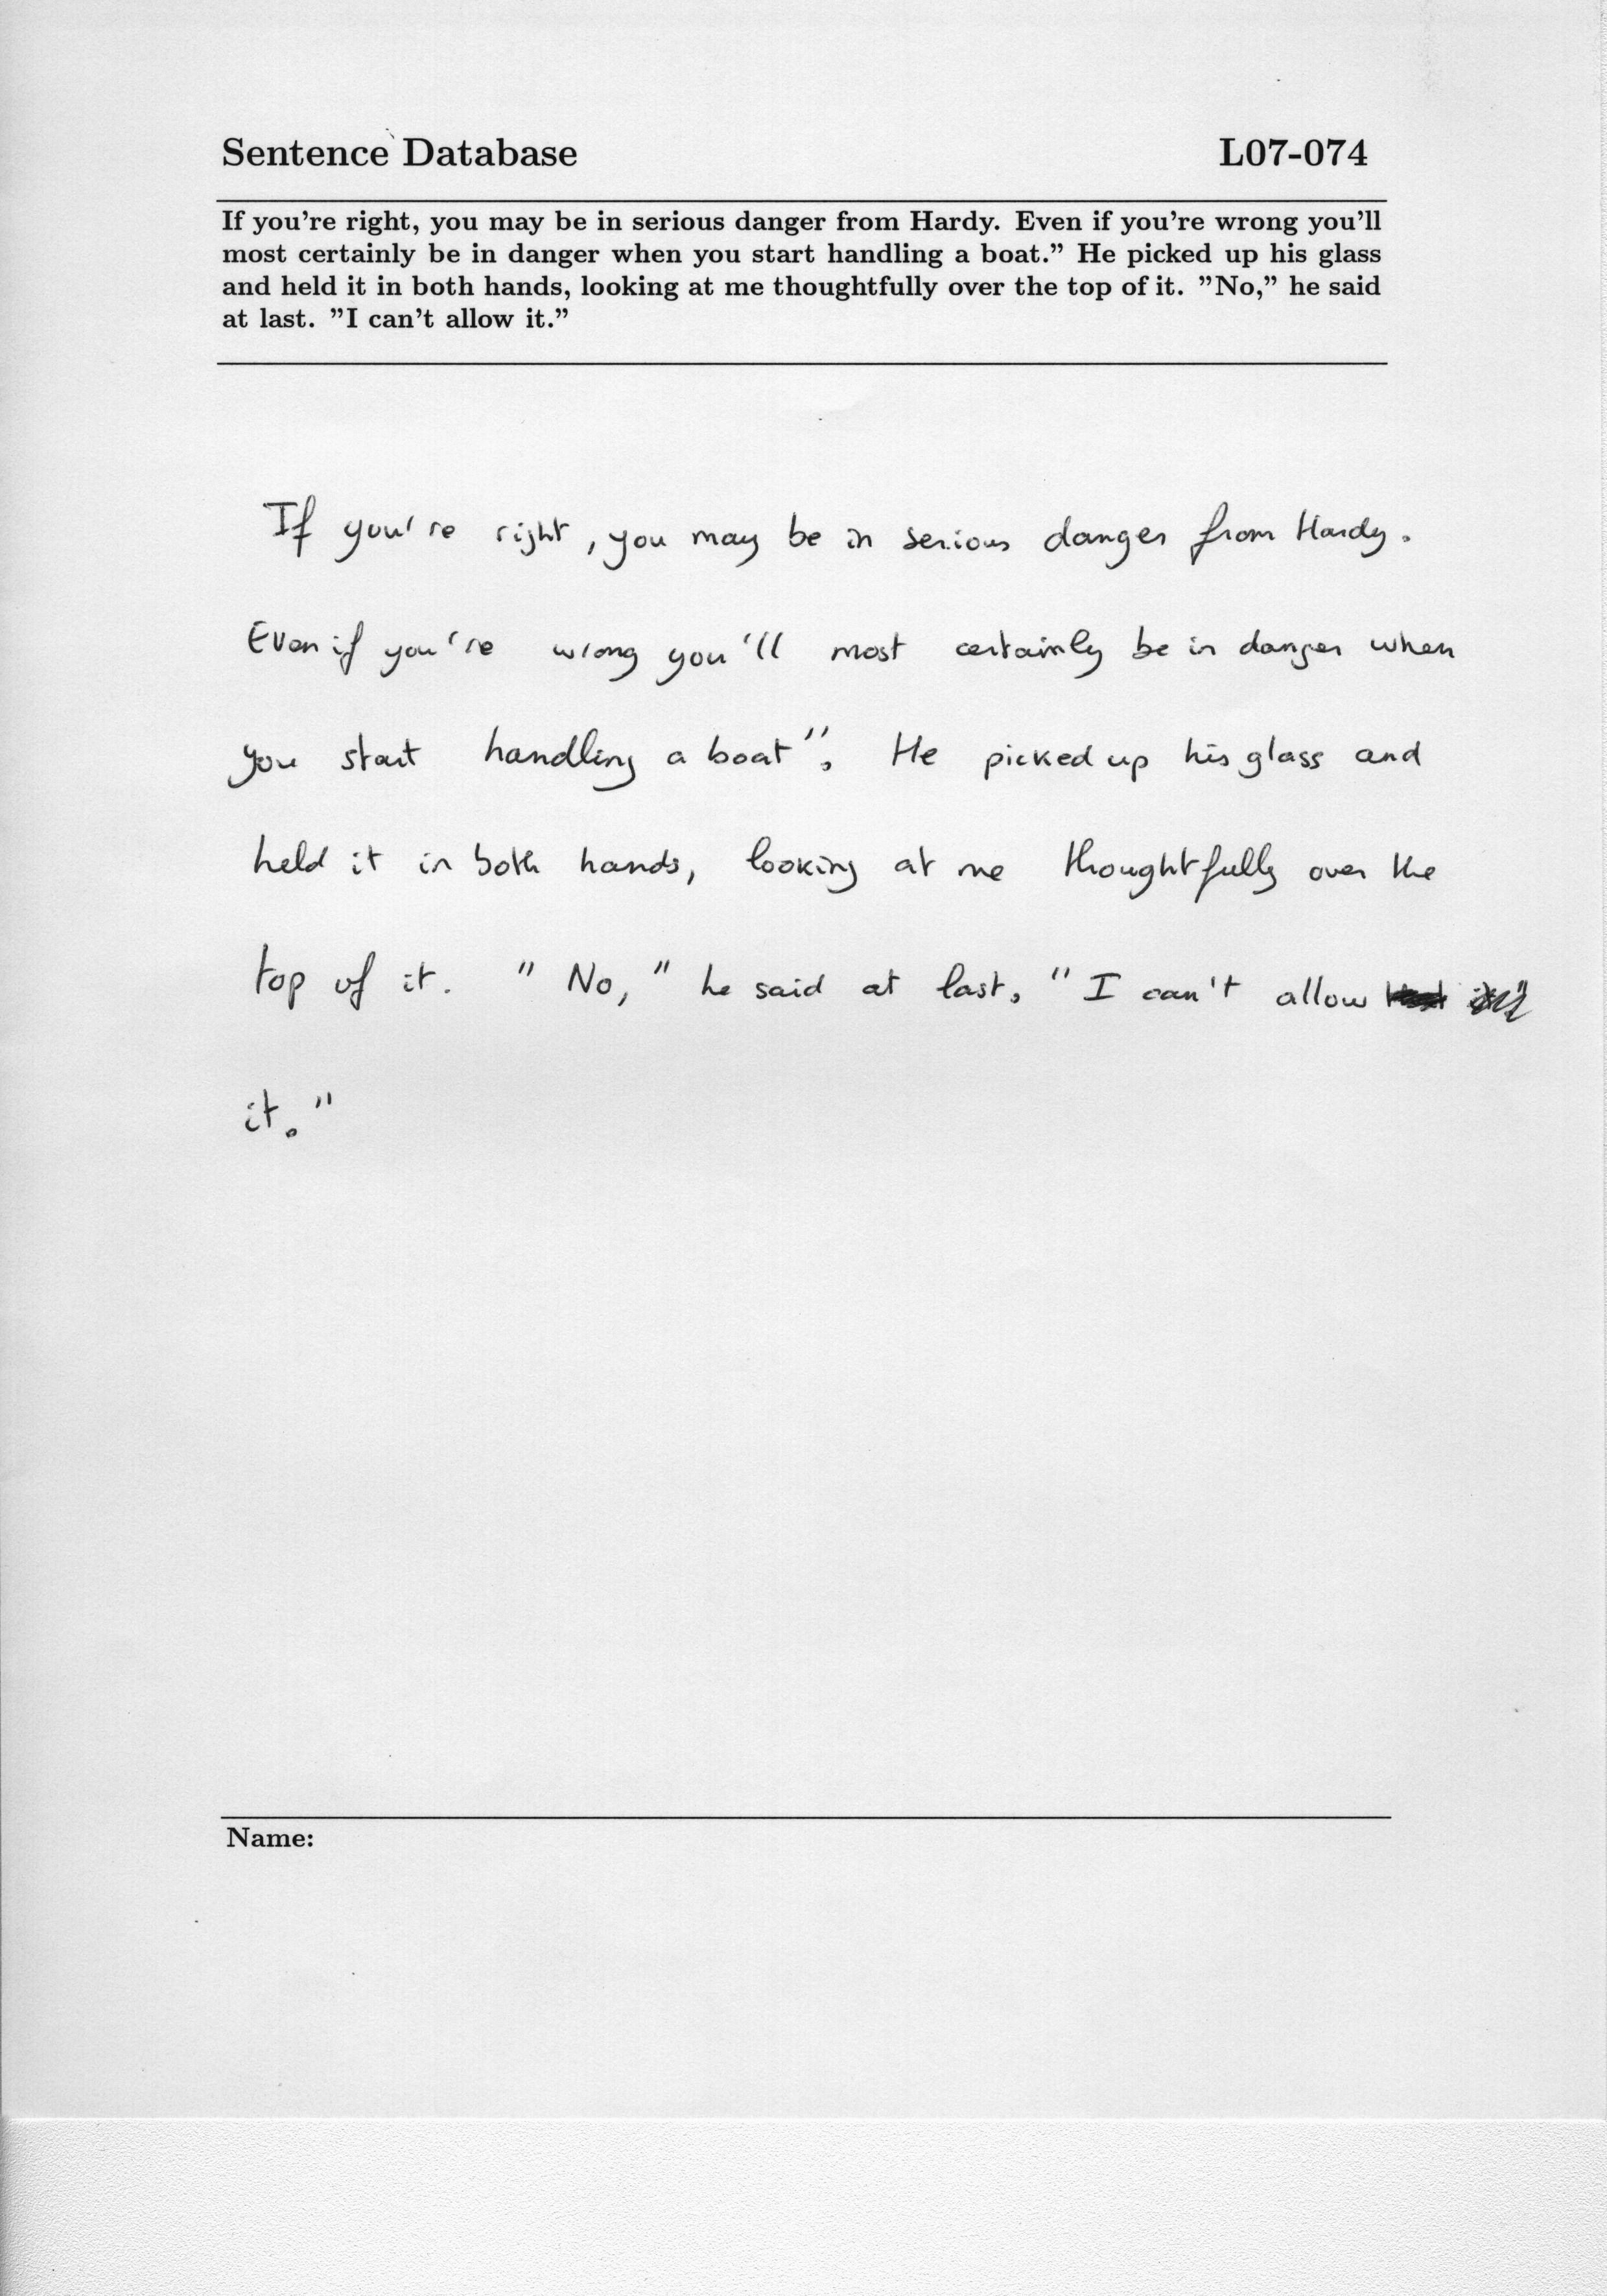 Sentence Database L07-074
If you're right, you may be in serious danger from Hardy. Even if you're wrong you'll
most certainly be in danger when you start handling a boat.” He picked up his glass
and held it in both hands, looking at me thoughtfully over the top of it. ”No,” he said
at last. ”I can't allow it.”
If you're right, you may be in serious danger from Hardy.
Even if you're wrong you'll most certainly be in danger when
you start handling a boat". He picked up his glass and
held it in both hands, looking at me thoughtfully over the
top of it. "No," he said at last. "I can't allow
it."
Name: